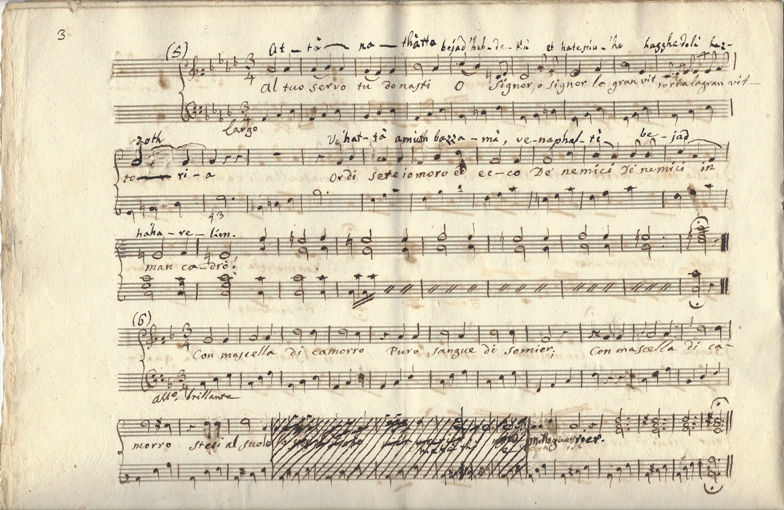 3
(5)
At - tà na - thàtta bejàd heb - de - hà et hatesiu - 'ha hagghedolà haz -
Al tuo servo tu donasti O Signor, o signor la gran vit toria la gran vit
Largo
zoth Ve'hat - tà amùth bazza - mà, ve - naphal - tì be - jad
to ri - a Or di sete io moro ed ec - co De' nemici De' nemici in
4 3
hàha - re - lìm.
man ca - drò!
(6)
Con mascella di camorro Puro sangue di somier, Con mascella di ca -
allo. brillante
morro stesi al suolo mille guerrier.